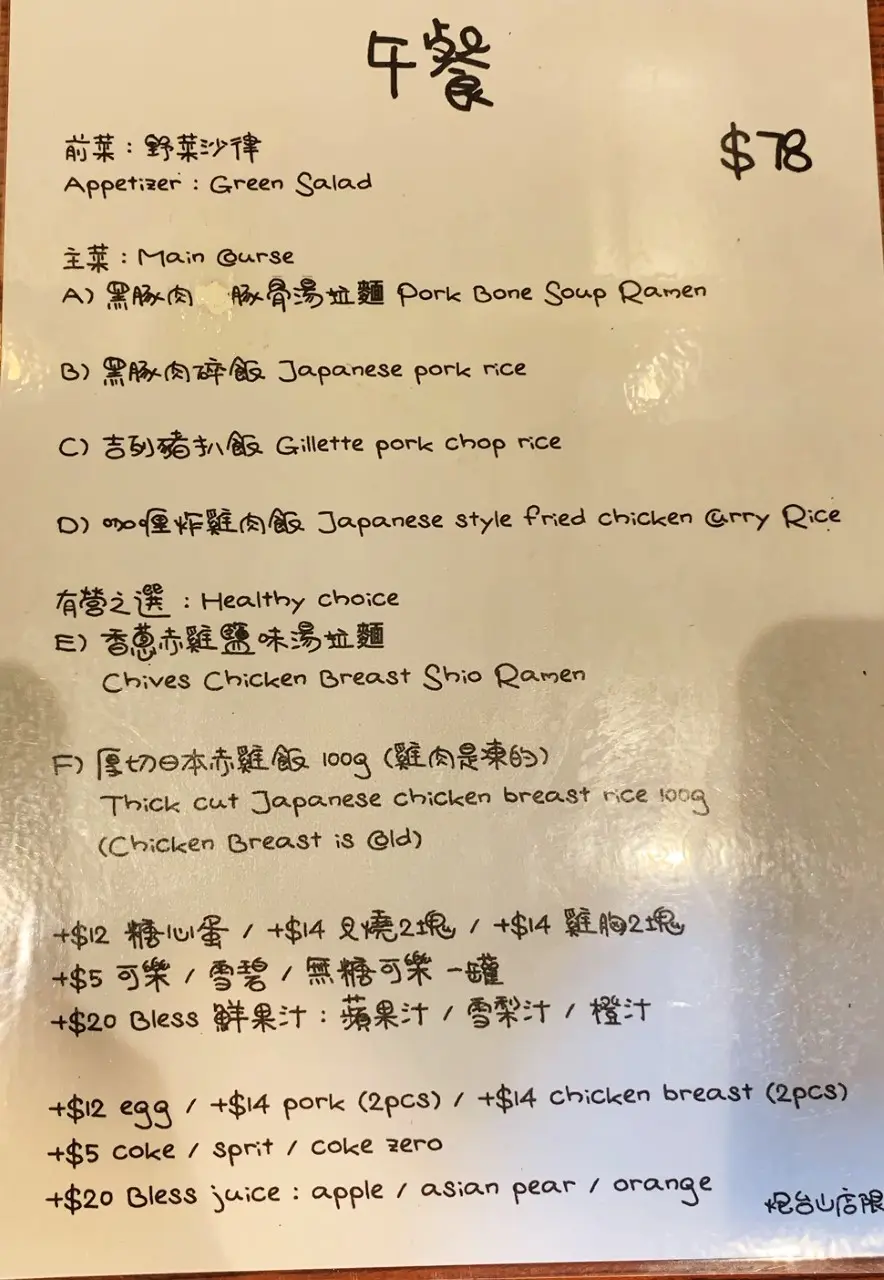 午餐
$78
前菜：野菜沙律
Appetizer : Green Salad
主菜：Main Course
A) 黑豚肉 豚骨湯拉麵 Pork Bone Soup Ramen
B) 黑豚肉碎飯 Japanese pork rice
C) 吉列豬扒飯 Gillette pork chop rice
D) 咖喱炸雞肉飯 Japanese style fried chicken Curry Rice
有營之選：Healthy choice
E) 香蔥赤雞鹽味湯拉麵
Chives Chicken Breast Shio Ramen
F) 厚切日本赤雞飯 100g (雞肉是凍的)
Thick cut Japanese chicken breast rice 100g
(Chicken Breast is Cold)
+$12 糖心蛋 / +$14 叉燒2塊 / +$14 雞胸2塊
+$5 可樂 / 雪碧 / 無糖可樂 一罐
+$20 Bless 鮮果汁：蘋果汁 / 雪梨汁 / 橙汁
+$12 egg / +$14 pork (2pcs) / +$14 chicken breast (2pcs)
+$5 coke / sprit / coke zero
+$20 Bless juice : apple / asian pear / orange
炮台山店限